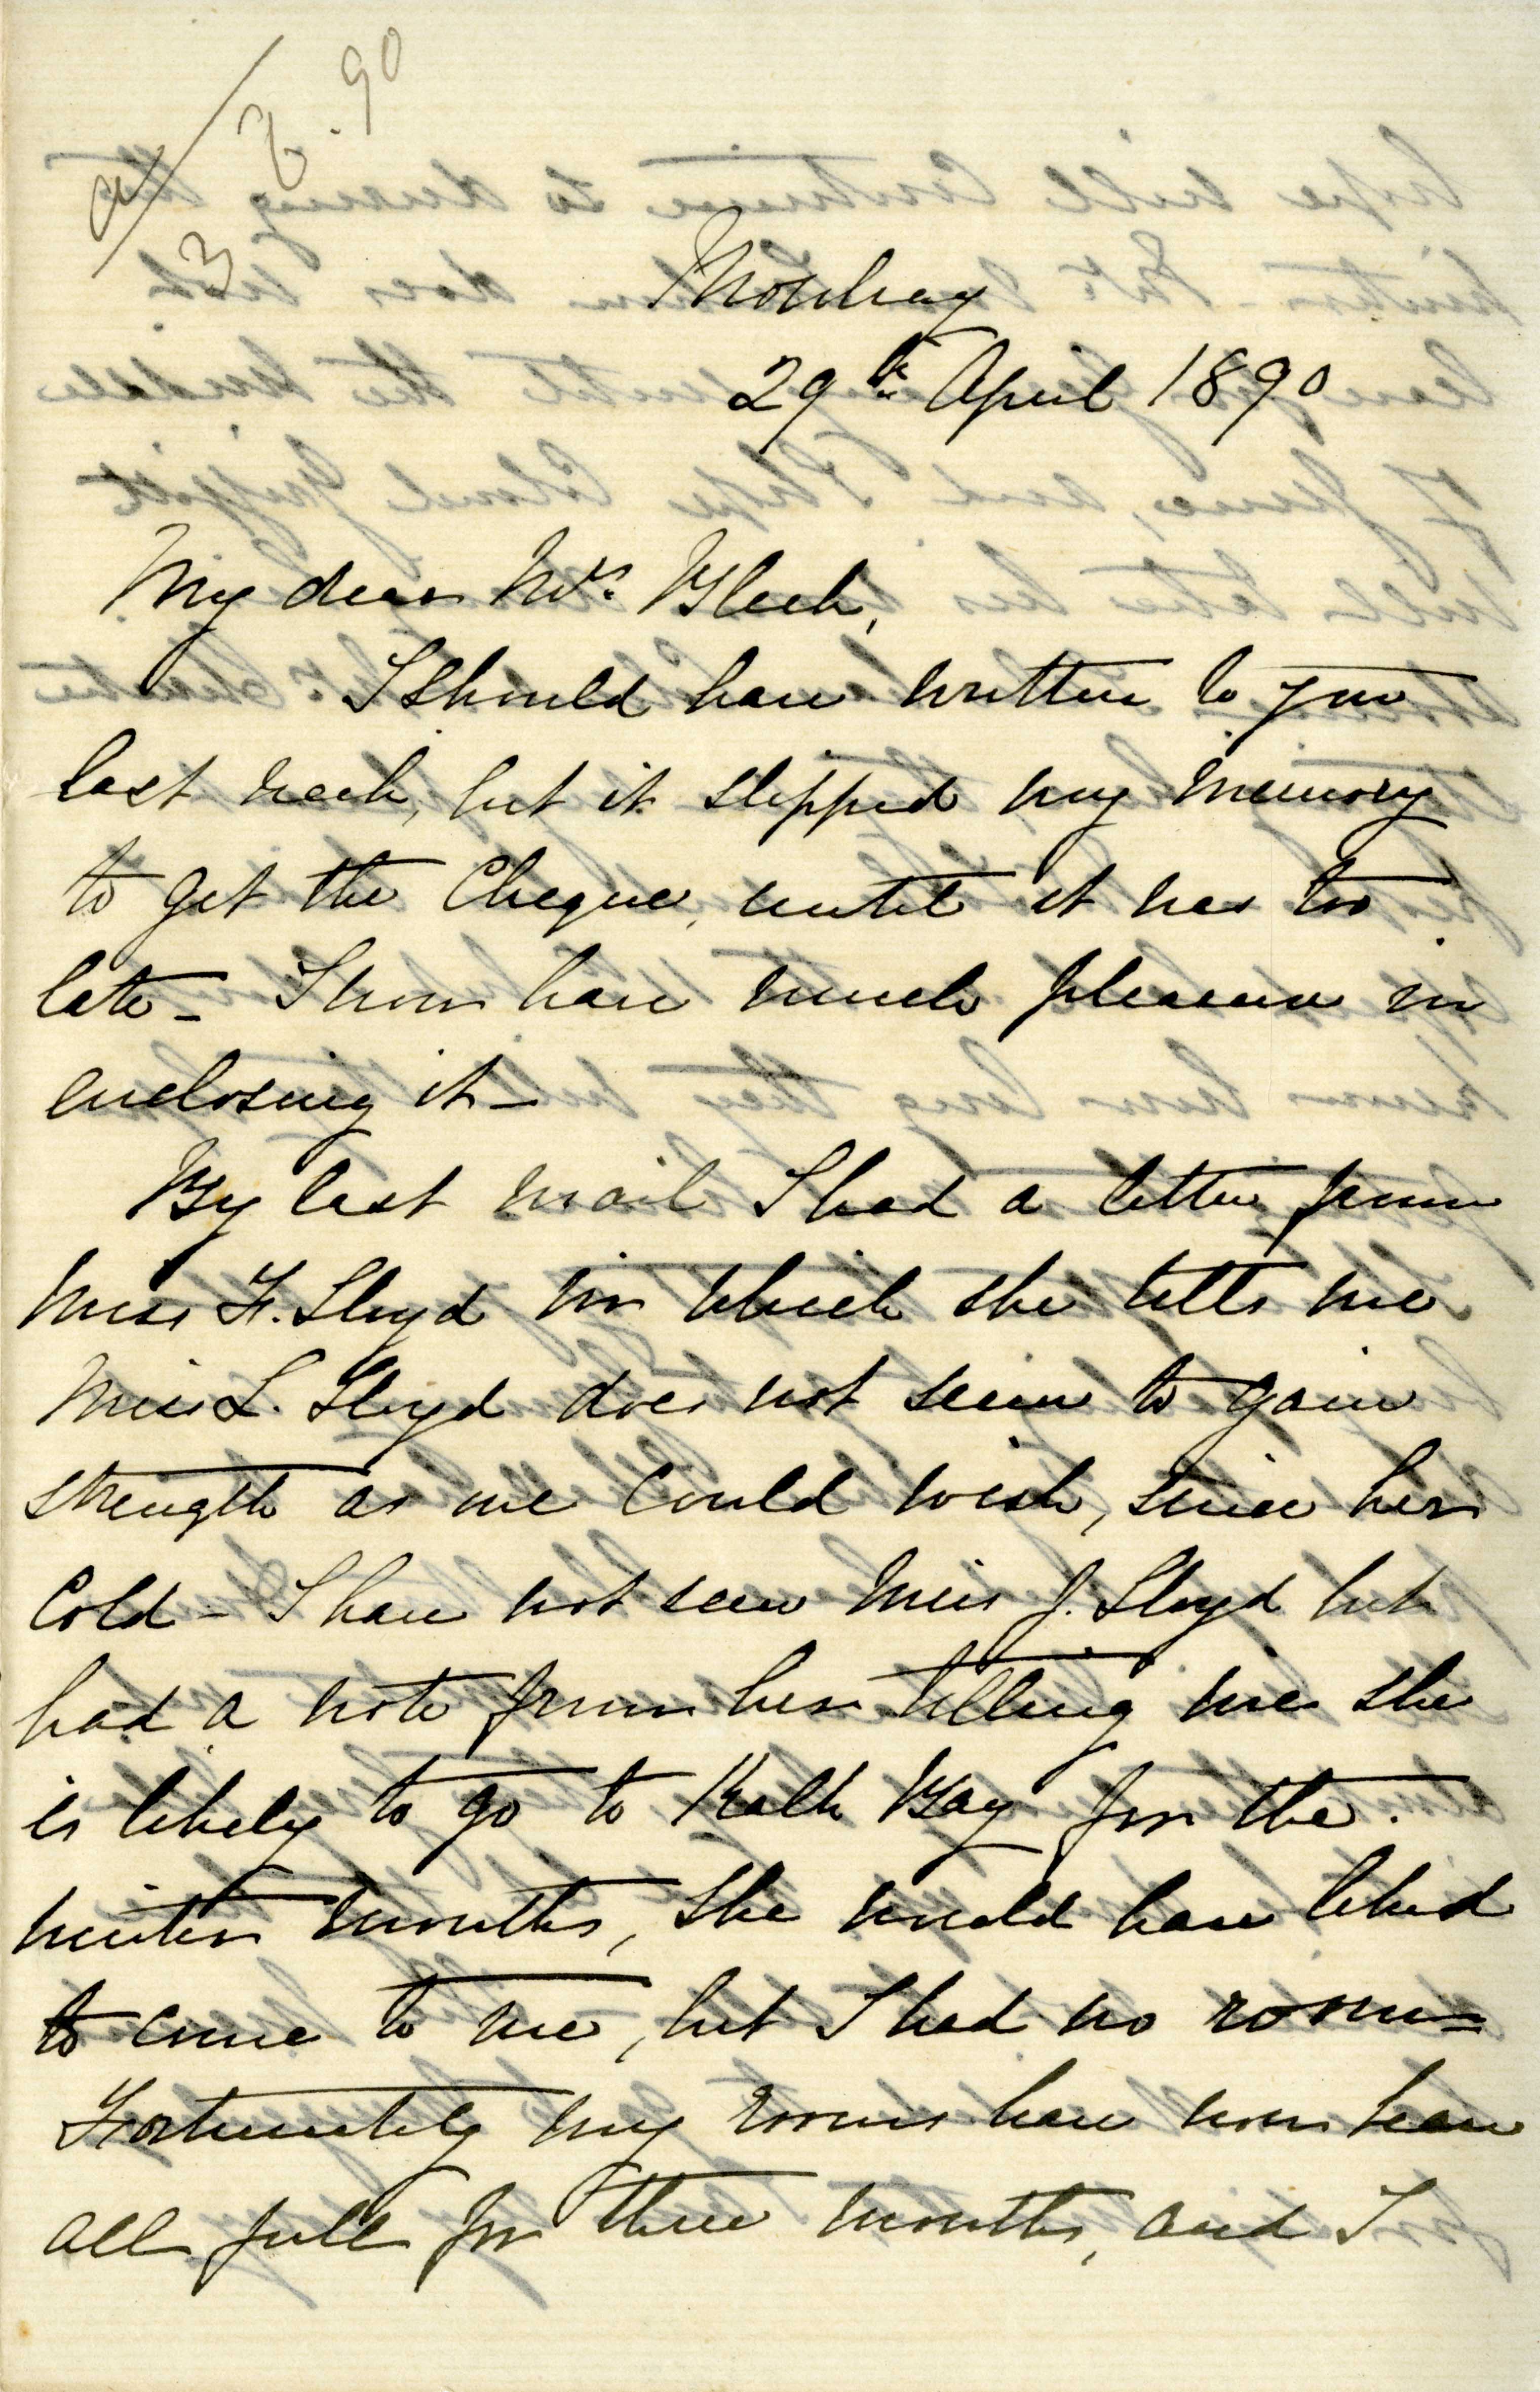 a/3 6.90
Mowbray
29th April 1890
My dear Mrs. Bleek,
I should have written to you
last week, but it slipped my memory
to get the Cheque, until it was too
late - I now have much pleasure in
enclosing it -
By last mail I had a letter from
Miss F. Lloyd in which she tells me
Miss L. Lloyd does not seem to gain
strength as we could wish, since her
Cold - I have not seen Miss J. Lloyd but
had a note from her telling me she
is likely to go to Kalk Bay for the
winter months, she would have liked
to come to me, but I had no room =
Fortunately my rooms have now been
all full for three months, and I